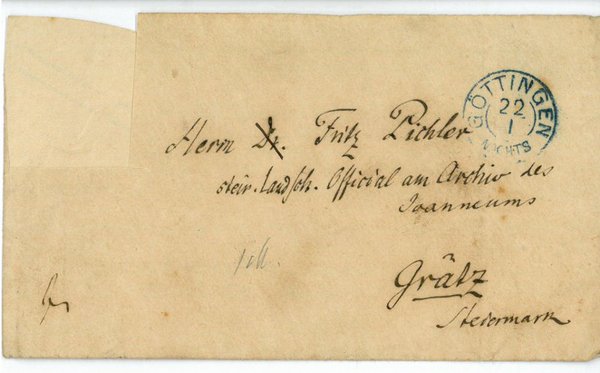 GÖTTINGEN
22
1
NACHTS
Herrn Dr. Fritz Pichler
steir. landsch. Official am Archiv des
Joanneums
Grätz
Steiermark